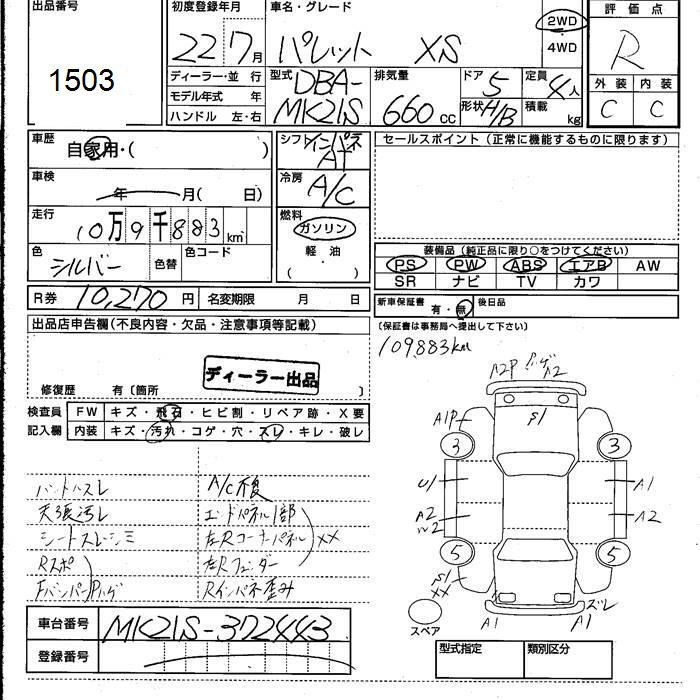 出品番号
1503
初度登録年月
22 7月
車名・グレード
パレット XS
2WD
・
4WD
評価点
R
ディーラー・並 行
モデル年式 年
ハンドル 左・右
型式
DBA-
MK21S
排気量
660 cc
ドア 5
形状 H/B
定員 4人
積載 kg
外装 内装
C C
車歴
自家用・( )
車検
年 月( 日)
走行
10万9千883km
色
シルバー
色替
色コード
シフト インパネ
AT
冷房
A/C
燃料
ガソリン
軽・油
( ・ )
セールスポイント(正常に機能するものに限ります)
装備品(純正品に限り○をつけてください)
PS PW ABS エアB AW
SR ナビ TV カワ
R券 10,270 円 名変期限 月 日
新車保証書 有・無 後日品
(保証書は事務局へ提出して下さい)
109883km
出品店申告欄(不良内容・欠品・注意事項等記載)
ディーラー出品
修復歴 有〔箇所 〕
検査員 FW キズ・飛石・ヒビ割・リペア跡・X要
記入欄 内装 キズ・汚れ・コゲ・穴・スレ・キレ・破レ
ハンドルスレ
天張汚レ
シートスレシミ
Rスポ
FバンパーPハゲ
A/C不良
エンドパネル1部
左Rコーナーパネル XX
左Rフェンダー
Rインパネ歪み
A2P ハゲ A2
A1P
S1
3 3
U1 A1
A2 A2
5 5
S1
XX
スペア
A1 A1 ズレ
車台番号 MK21S-372443
登録番号
型式指定 類別区分